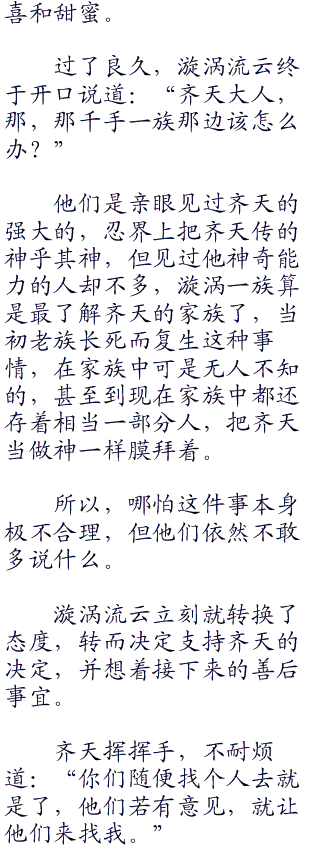 喜和甜蜜。
过了良久，漩涡流云终
于开口说道：“齐天大人，
那，那千手一族那边该怎么
办？”
他们是亲眼见过齐天的
强大的，忍界上把齐天传的
神乎其神，但见过他神奇能
力的人却不多，漩涡一族算
是最了解齐天的家族了，当
初老族长死而复生这种事
情，在家族中可是无人不知
的，甚至到现在家族中都还
存着相当一部分人，把齐天
当做神一样膜拜着。
所以，哪怕这件事本身
极不合理，但他们依然不敢
多说什么。
漩涡流云立刻就转换了
态度，转而决定支持齐天的
决定，并想着接下来的善后
事宜。
齐天挥挥手，不耐烦
道：“你们随便找个人去就
是了，他们若有意见，就让
他们来找我。”